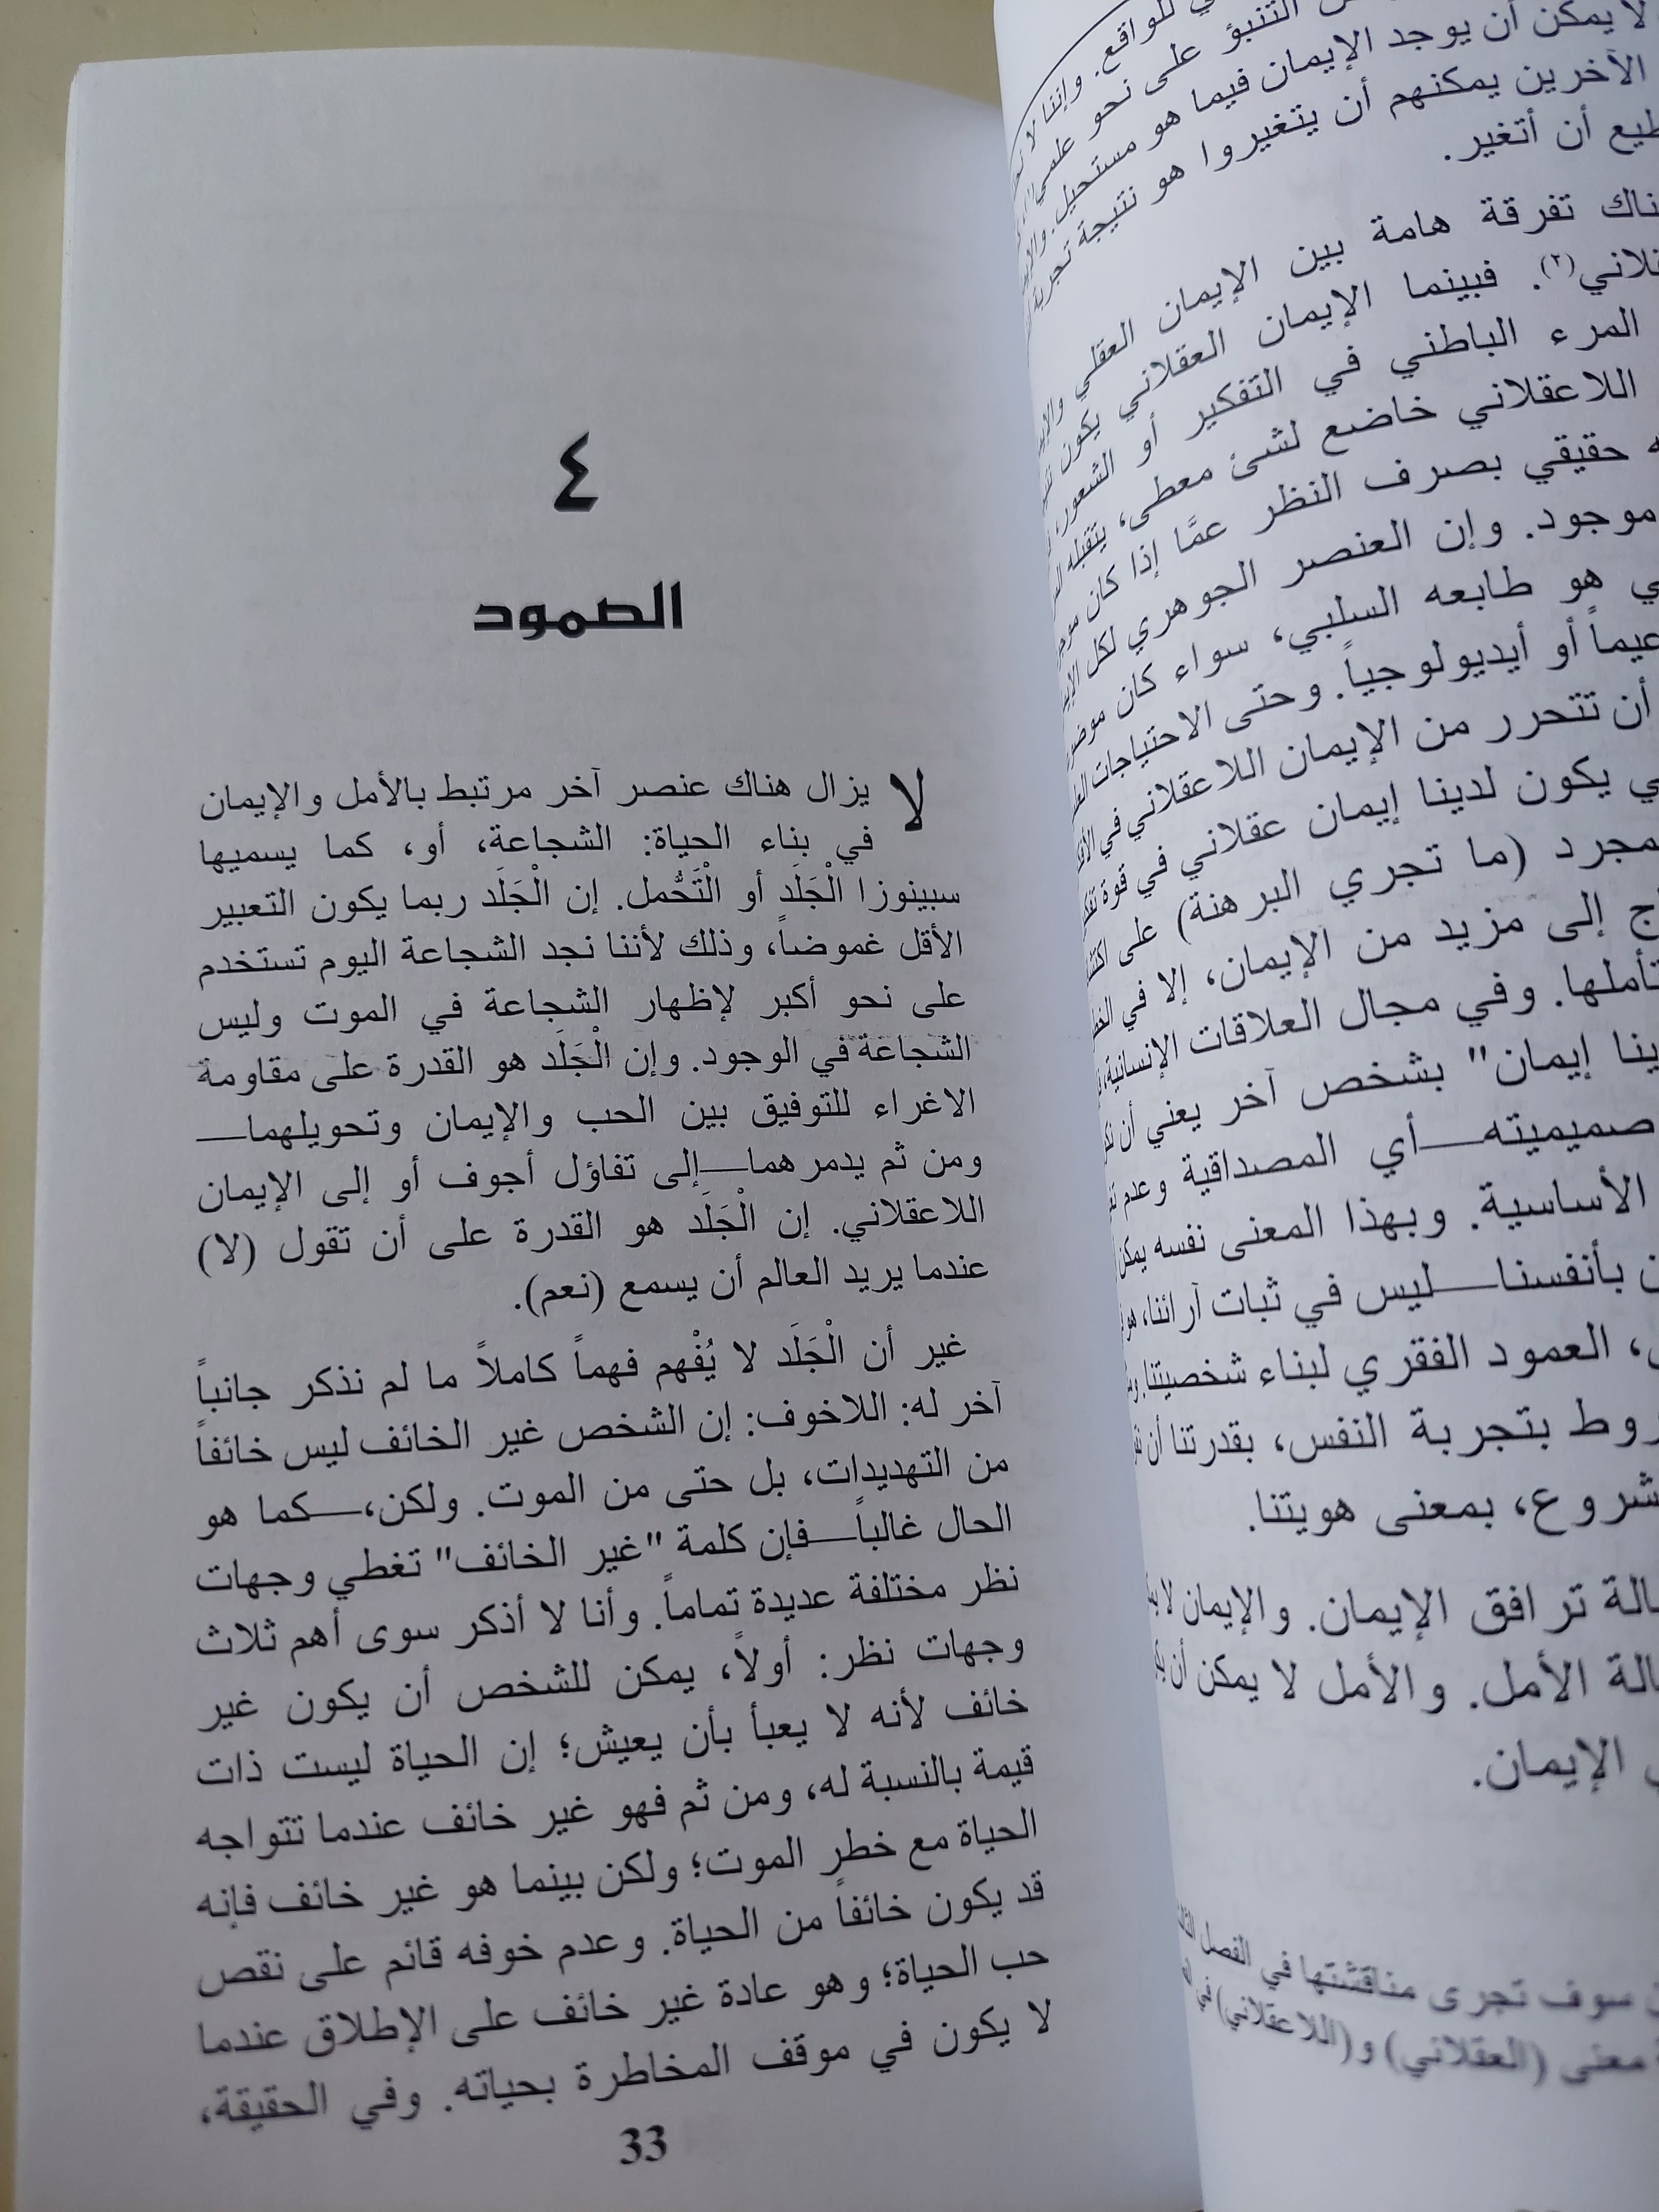 للواقع. وإننا لا
التنبؤ على نحو علمي
لا يمكن أن يوجد الإيمان فيما هو مستحيل.
الآخرين يمكنهم أن يتغيروا هو نتيجة تجربة
أن أتغير.
تفرقة هامة بين الإيمان العقلي
(٢). فبينما الإيمان العقلاني يكون
المرء الباطني في التفكير أو الشعور،
اللاعقلاني خاضع لشئ معطى، يتقبله
حقيقي بصرف النظر عمَّا إذا كان
موجود. وإن العنصر الجوهري لكل
هو طابعه السلبي، سواء كان
أو أيديولوجياً. وحتى الاحتياجات
أن تتحرر من الإيمان اللاعقلاني في
يكون لدينا إيمان عقلاني في قوة
مجرد (ما تجري البرهنة) على
إلى مزيد من الإيمان، إلا في
تأملها. وفي مجال العلاقات الإنسانية،
إيمان" بشخص آخر يعني أن
صميميته—أي المصداقية وعدم
الأساسية. وبهذا المعنى نفسه يمكن
بأنفسنا—ليس في ثبات آرائنا،
العمود الفقري لبناء شخصيتنا.
بتجربة النفس، بقدرتنا أن
بمعنى هويتنا.
ترافق الإيمان. والإيمان لا
الأمل. والأمل لا يمكن أن
الإيمان.
سوف تجرى مناقشتها في الفصل
معنى (العقلاني) و(اللاعقلاني) في
٤
الصمود
لا يزال هناك عنصر آخر مرتبط بالأمل والإيمان
في بناء الحياة: الشجاعة، أو، كما يسميها
سبينوزا الْجَلَد أو الْتَحُّمل. إن الْجَلَد ربما يكون التعبير
الأقل غموضاً، وذلك لأننا نجد الشجاعة اليوم تستخدم
على نحو أكبر لإظهار الشجاعة في الموت وليس
الشجاعة في الوجود. وإن الْجَلَد هو القدرة على مقاومة
الاغراء للتوفيق بين الحب والإيمان وتحويلهما—
ومن ثم يدمرهما—إلى تفاؤل أجوف أو إلى الإيمان
اللاعقلاني. إن الْجَلَد هو القدرة على أن تقول (لا)
عندما يريد العالم أن يسمع (نعم).
غير أن الْجَلَد لا يُفْهم فهماً كاملاً ما لم نذكر جانباً
آخر له: اللاخوف: إن الشخص غير الخائف ليس خائفاً
من التهديدات، بل حتى من الموت. ولكن،—كما هو
الحال غالباً—فإن كلمة "غير الخائف" تغطي وجهات
نظر مختلفة عديدة تماماً. وأنا لا أذكر سوى أهم ثلاث
وجهات نظر: أولاً، يمكن للشخص أن يكون غير
خائف لأنه لا يعبأ بأن يعيش؛ إن الحياة ليست ذات
قيمة بالنسبة له، ومن ثم فهو غير خائف عندما تتواجه
الحياة مع خطر الموت؛ ولكن بينما هو غير خائف فإنه
قد يكون خائفاً من الحياة. وعدم خوفه قائم على نقص
حب الحياة؛ وهو عادة غير خائف على الإطلاق عندما
لا يكون في موقف المخاطرة بحياته. وفي الحقيقة،
33